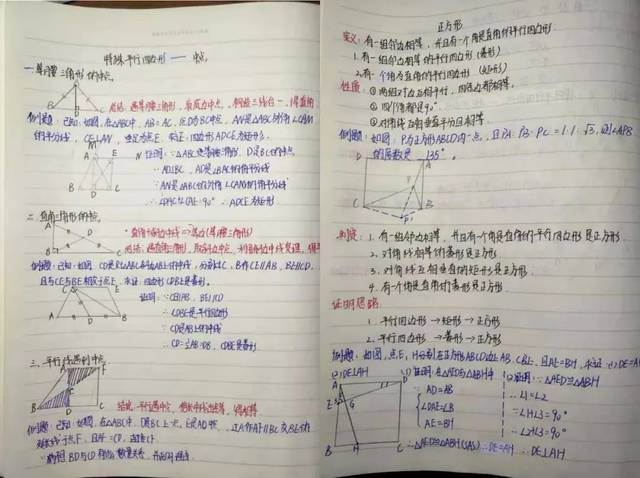 特殊平行四边形——中点
一.等腰三角形的中点
总结:遇等腰三角形,取底边中点,
例题:已知:如图,在△ABC中,AB=AC,点D为BC中点,AN是△ABC外角∠CAM
的平分线,CE⊥AN,垂足为点E,求证:四边形ADCE为矩形.
证明:∵△ABC是等腰三角形,D是BC的中点
∴AD⊥BC,AD是∠BAC的角平分线
∵AN是△ABC的外角∠CAM的角平分线
∴∠DAE=90° ∴ADCE为矩形
二.直角三角形的中点
例题:已知:如图,CD是Rt△ABC斜边AB上的中线,
且CE与BE相交于点E,求证:四边形CDBE是菱形.
证明:∵CE∥AB,BE∥CD
∴CDBE是平行四边形
∵CD是AB上的中线
∴CD=½AB=DB,CDBE是菱形
三.平行线遇到中点
例题:已知:如图,在△ABC中,D是BC上一点,E是AD中点,过A作AF∥BC交BE的
延长线于点F,且AF=CD,连接CF.
正方形
定义:有一组邻边相等,并且有一个角是直角的平行四边形
1.有一组邻边相等的平行四边形(菱形)
2.有一个角为直角的平行四边形(矩形)
性质:①两组对边互相平行,四条边都相等,
②四个角都是90°.
③对角线互相垂直平分且相等
例题:如图:P为正方形ABCD内一点,且PA:PB:PC=1:1:√3,则∠APB
的度数是 135°.
判定:1.有一组邻边相等,并且有一个角是直角的平行四边形是正方形.
2.对角线相等的菱形是正方形
3.对角线互相垂直的矩形是正方形
4.有一个角是直角的菱形是正方形
证明思路:
1.平行四边形→矩形→正方形
2.平行四边形→菱形→正方形
例题:如图,点E,H分别在正方形ABCD边上AB,CB上,且AE=BH,求证:(1)DE=A
(2)DE⊥AH
(1)证明:在△AED与△ABH中
AD=AB
∠DAE=∠B
AE=BH
∴△AED≌△ABH(SAS)∴DE=AH
(2)证明:∵△AED≌△ABH
∴∠1=∠2
∵∠1+∠3=90°
∴∠2+∠3=90°
∴DE⊥AH